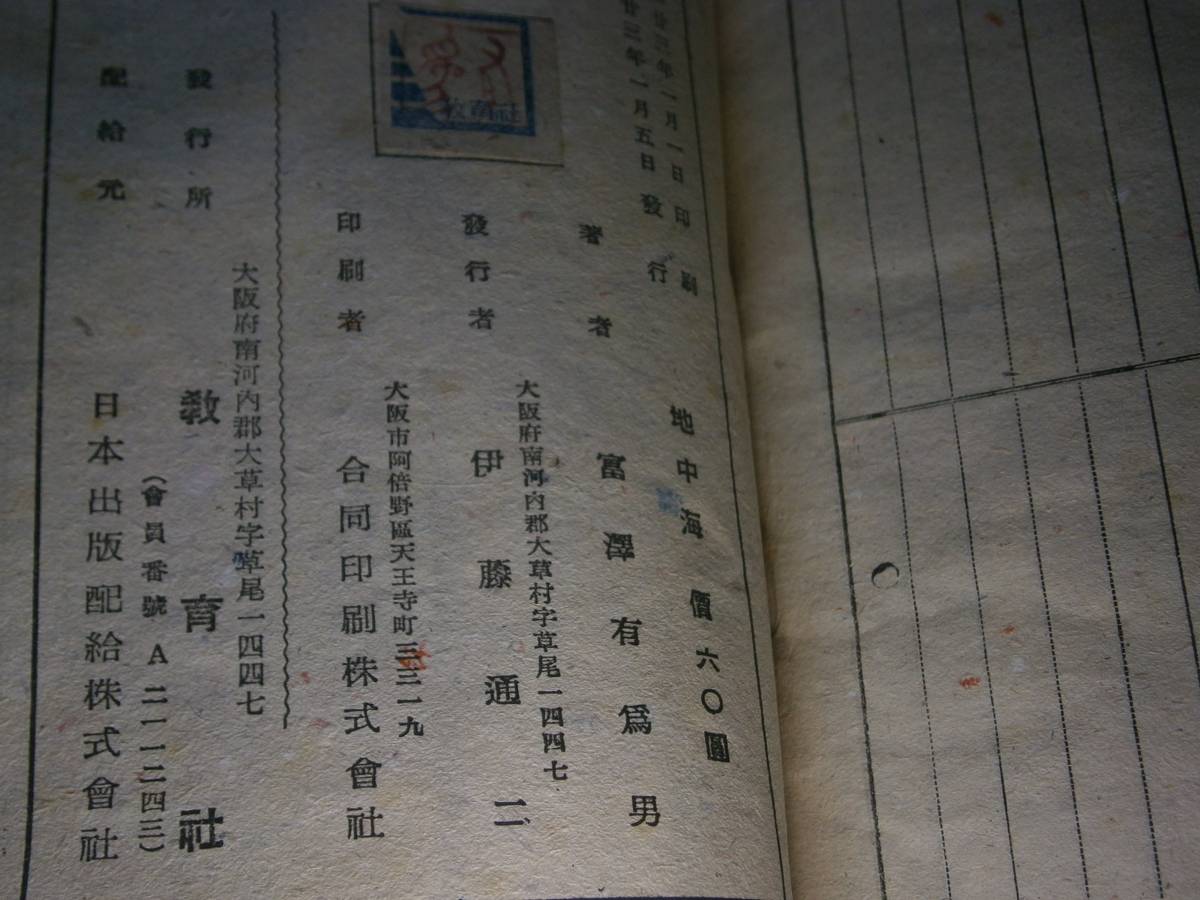 廿三年一月一日印刷
廿三年一月五日發行
地中海 價六〇圓
著者 富澤有爲男
大阪府南河內郡大草村字草尾一四四七
發行者 伊藤通二
大阪市阿倍野區天王寺町三三一九
印刷者 合同印刷株式會社
社育教
大阪府南河內郡大草村字草尾一四四七
發行所 教育社
(會員番號 A 二一一二四三)
配給元 日本出版配給株式會社